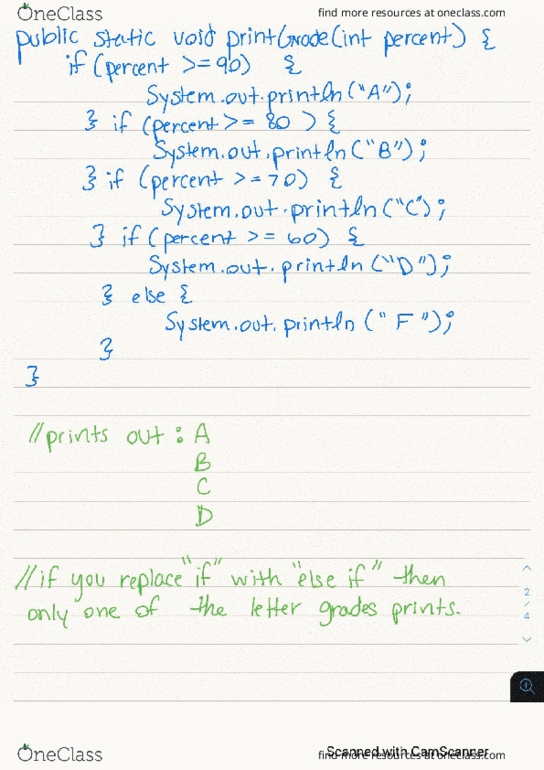 OneClass
find more resources at oneclass.com
public static void printGrade(int percent) {
if (percent >= 90) {
System.out.println("A");
} if (percent >= 80 ) {
System.out.println("B");
} if (percent >= 70) {
System.out.println("C");
} if (percent >= 60) {
System.out.println("D");
} else {
System.out.println(" F ");
}
}
//prints out : A
B
C
D
//if you replace "if" with "else if" then
only one of the letter grades prints.
2
/
4
OneClass
find more resources at oneclass.com
Scanned with CamScanner